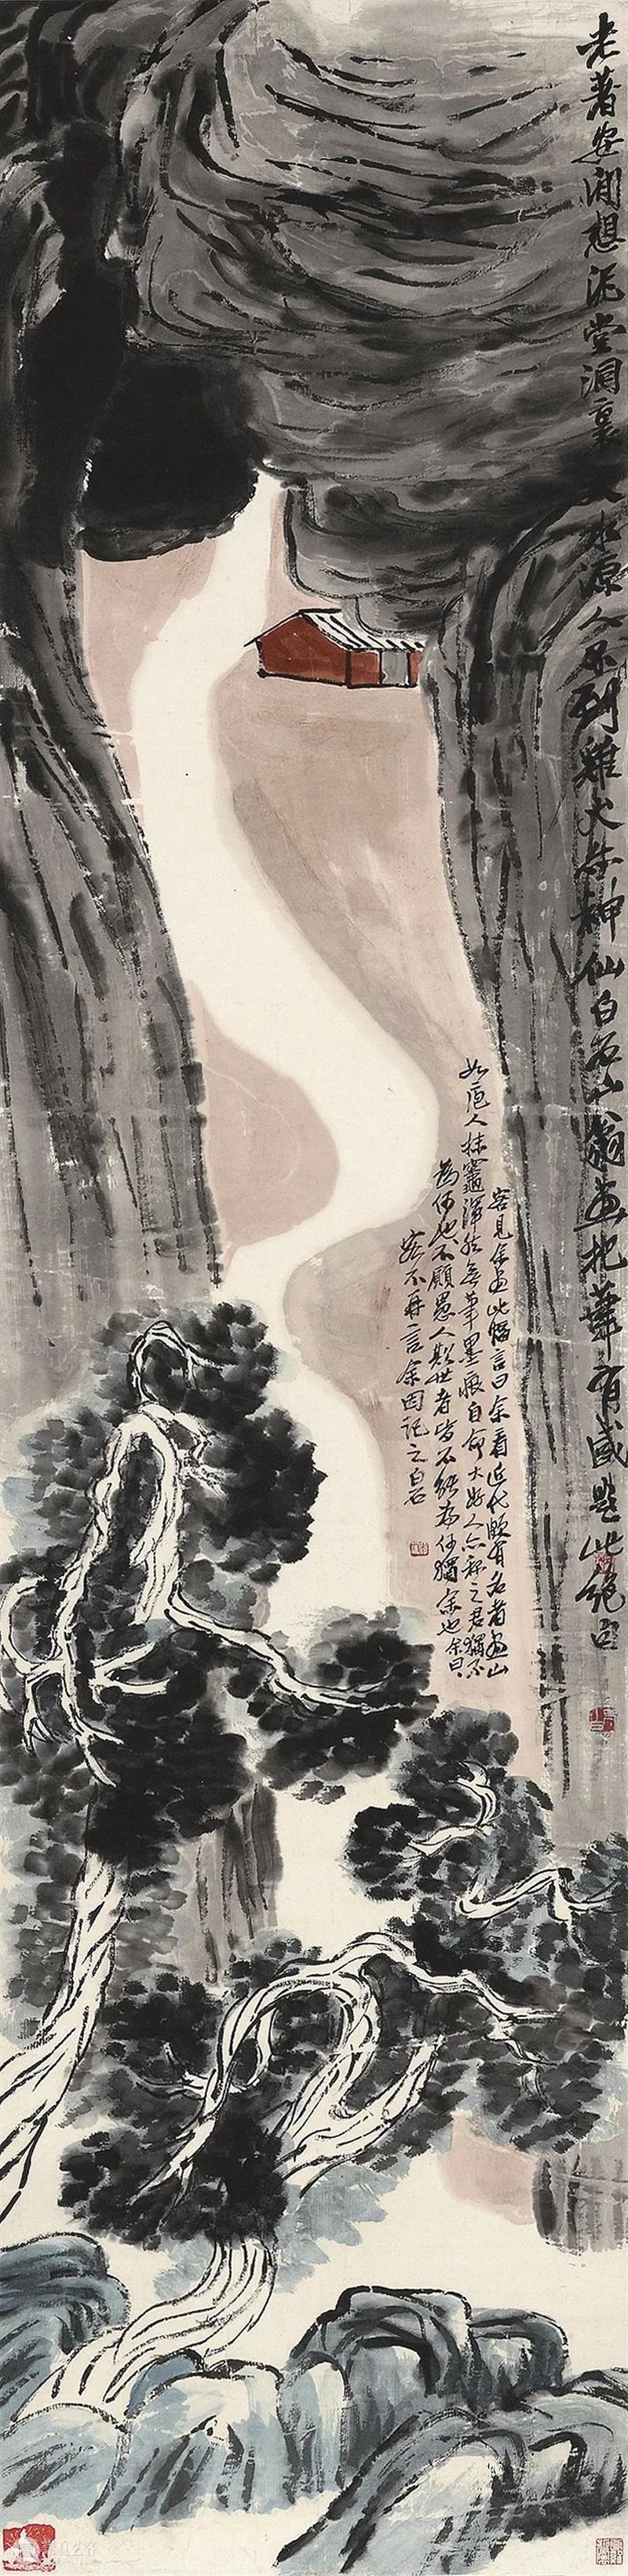 老著安閒想泥堂洞裏天水源人不到雞犬亦神仙白石山翁畫把筆有感題此絕句
客見余畫此幅言曰余看近代頗有名者畫山
如庖人抹竈渾然無筆墨痕自命大好人亦稱之君獨不
為何也不願愚人欺世者皆不能為何獨余也余曰
客不再言余因記之白石